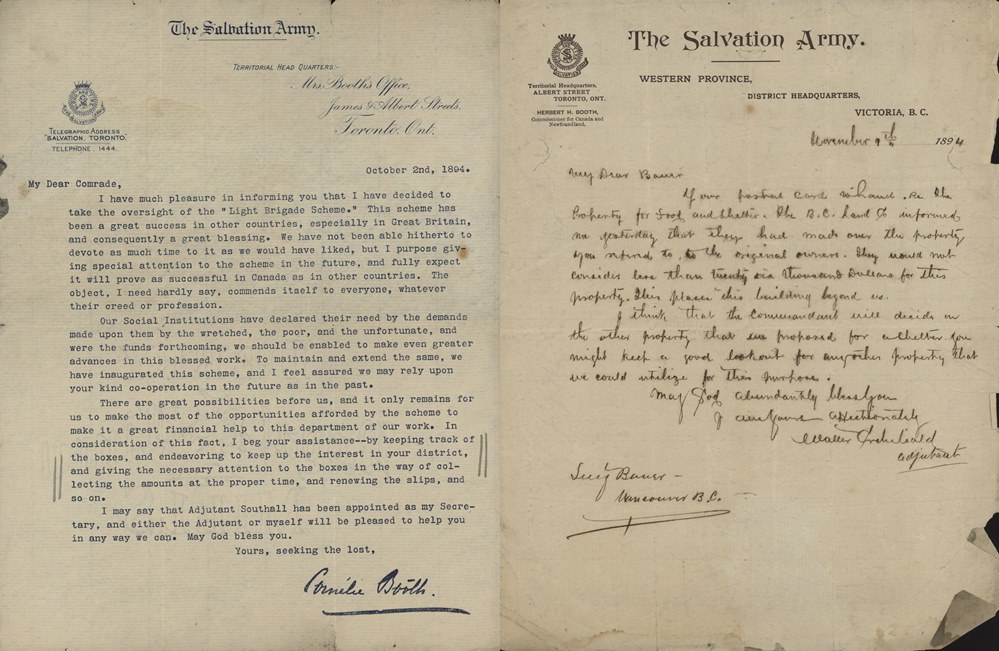 The Salvation Army.
TERRITORIAL HEAD QUARTERS:-
Mrs. Booth's Office,
James & Albert Streets.
Toronto. Ont.
TELEGRAPHIC ADDRESS
"SALVATION, TORONTO."
TELEPHONE. 1444.
October 2nd, 1894.
My Dear Comrade,
I have much pleasure in informing you that I have decided to
take the oversight of the "Light Brigade Scheme." This scheme has
been a great success in other countries, especially in Great Britain,
and consequently a great blessing. We have not been able hitherto to
devote as much time to it as we would have liked, but I purpose giv-
ing special attention to the scheme in the future, and fully expect
it will prove as successful in Canada as in other countries. The
object, I need hardly say, commends itself to everyone, whatever
their creed or profession.
Our Social Institutions have declared their need by the demands
made upon them by the wretched, the poor, and the unfortunate, and
were the funds forthcoming, we should be enabled to make even greater
advances in this blessed work. To maintain and extend the same, we
have inaugurated this scheme, and I feel assured we may rely upon
your kind co-operation in the future as in the past.
There are great possibilities before us, and it only remains for
us to make the most of the opportunities afforded by the scheme to
make it a great financial help to this department of our work. In
consideration of this fact, I beg your assistance--by keeping track of
the boxes, and endeavoring to keep up the interest in your district,
and giving the necessary attention to the boxes in the way of col-
lecting the amounts at the proper time, and renewing the slips, and
so on.
I may say that Adjutant Southall has been appointed as my Secre-
tary, and either the Adjutant or myself will be pleased to help you
in any way we can. May God bless you.
Yours, seeking the lost,
Cornélie Booth.
The Salvation Army.
WESTERN PROVINCE,
DISTRICT HEADQUARTERS,
VICTORIA, B. C.
Territorial Headquarters,
ALBERT STREET
TORONTO, ONT.
HERBERT H. BOOTH,
Commissioner for Canada and
Newfoundland.
November 9th 1894
My Dear Bauer
Your postal card to hand. Re the
Property for Food and Shelter. The B.C. Land Co informed
me yesterday that they had made over the property
you refered to, to the original owners. They would not
consider less than twenty six thousand Dollars for this
property. This places this building beyond us.
I think that the Commandant will decide on
the other property that was proposed for a shelter. you
might keep a good lookout for any other property that
we could utilize for this purpose.
May God abundantly bless you
I am yours affectionately
Walter Archibald
Adjutant
Bauer
Vancouver B.C.